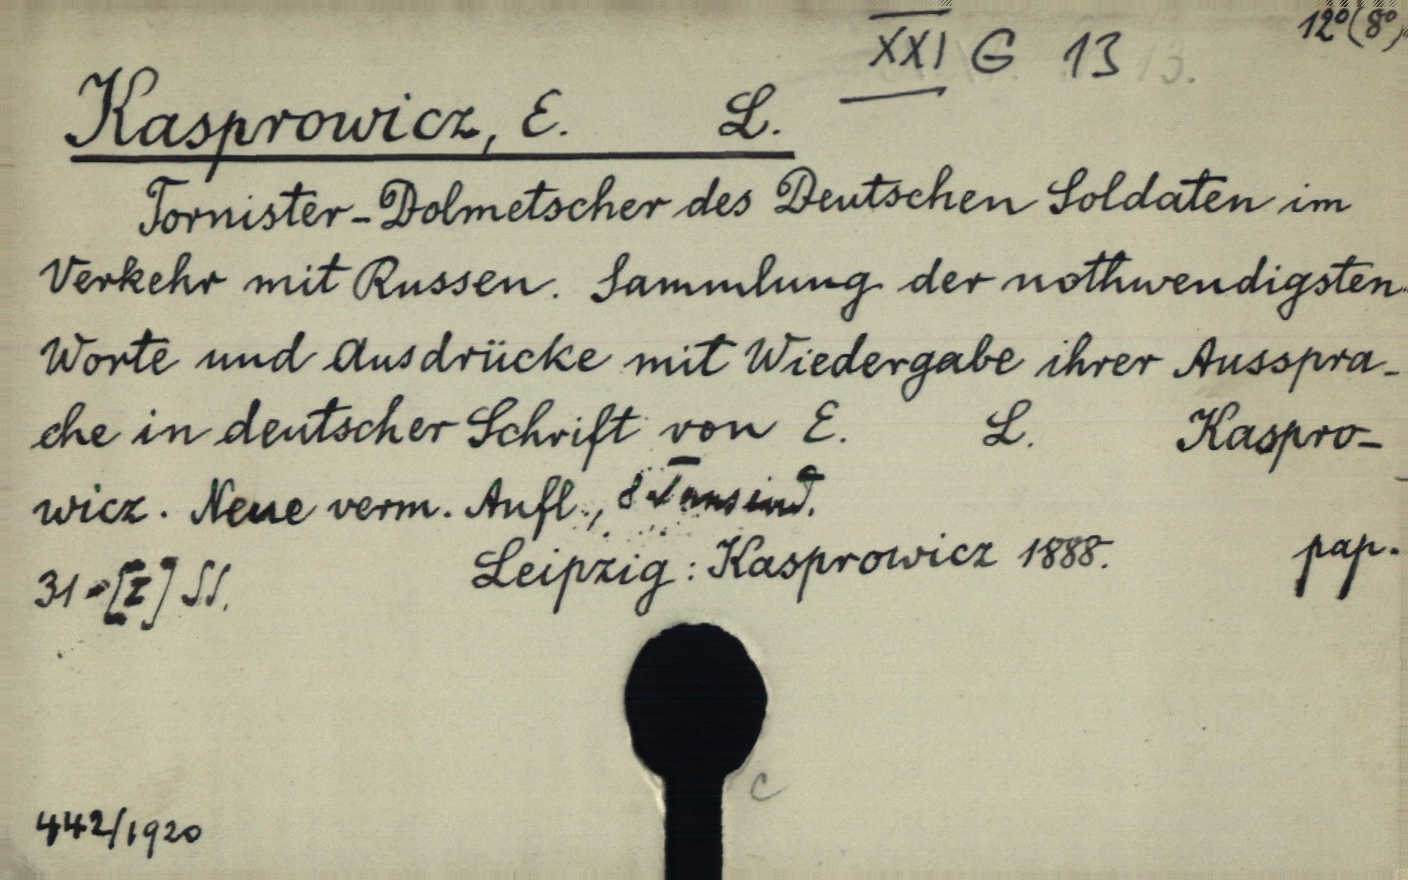 12°(8°)
XXI G 13
Kasprowicz, E. L.
Tornister-Dolmetscher des Deutschen Soldaten im
Verkehr mit Russen. Sammlung der nothwendigsten
Worte und Ausdrücke mit Wiedergabe ihrer Ausspra-
che in deutscher Schrift von E. L. Kaspro-
wicz. Neue verm. Aufl., 8 Tausend.
Leipzig: Kasprowicz 1888. pap.
31 SS.
442/1920
c